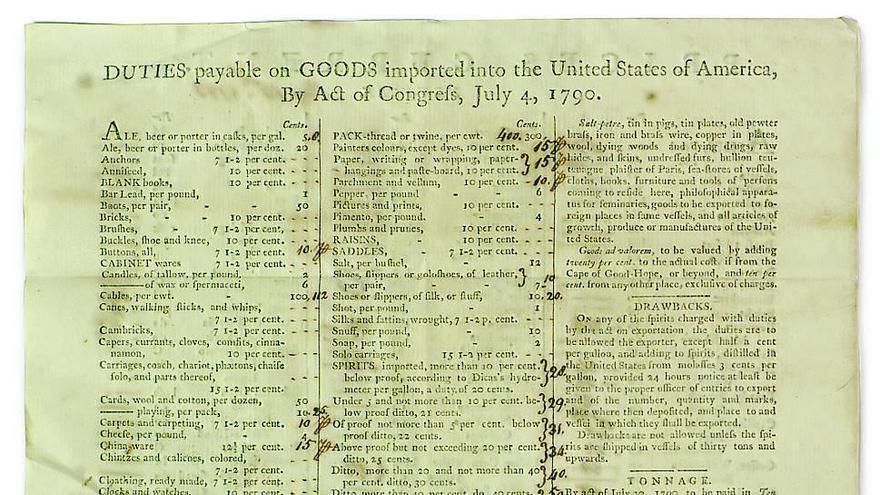 DUTIES payable on GOODS imported into the United States of America,
By Act of Congreſs, July 4, 1790.
Cents.
ALE, beer or porter in caſks, per gal. 5 6.
Ale, beer or porter in bottles, per doz. 20
Anchors 7 1-2 per cent. - - -
Anniſeed, 10 per cent. - - -
BLANK books, 10 per cent. - - -
Bar Lead, per pound, - 1
Boots, per pair, - - 50
Bricks, - - 10 per cent. - - -
Bruſhes, - 7 1-2 per cent, - - -
Buckles, ſhoe and knee, 10 per cent. - - -
Buttons, all, 7 1-2 per cent. - 10.
CABINET wares 7 1-2 per cent. - - -
Candles, of tallow, per pound, - 2
—— of wax or ſpermaceti, 6
Cables, per cwt. - 100, 112
Canes, walking ſticks, and whips,
7 1-2 per cent. - - -
Cambricks, 7 1-2 per cent. - - -
Capers, currants, cloves, comfits, cinna-
namon, 10 per cent. - - -
Carriages, coach, chariot, phætons, chaiſe
ſolo, and parts thereof,
15 1-2 per cent. - - -
Cards, wool and cotton, per dozen, 50
—— playing, per pack, 10. 25.
Carpets and carpeting, 7 1-2 per cent. - 10
Cheeſe, per pound, - 4
China ware 12½ per cent. - 15
Chintzes and calicoes, colored,
7 1-2 per cent. - - -
Cloathing, ready made, 7 1-2 per cent. - - -
Clocks and watches, 10 per cent. - - -
Cents.
PACK-thread or twine, per cwt. 400. 300
Painters colours, except dyes, 10 per cent. 15
Paper, writing or wrapping, paper-
hangings and paſte-board, 10 per cent. 15
Parchment and vellum, 10 per cent. - 10.
Pepper, per pound - 6
Pictures and prints, 10 per cent. - - -
Pimento, per pound. - 4
Plumbs and prunes, 10 per cent. - - -
RAISINS, - 10 per cent. - - -
SADDLES, - 7 1-2 per cent. - - -
Salt, per buſhel, 12
Shoes, ſlippers or goloſhoes, of leather,
per pair, - - 7 10
Shoes or ſlippers, of ſilk, or ſtuff, 10. 20.
Shot, per pound, 1
Silks and ſattins, wrought, 7 1-2 p. cent. - - -
Snuff, per pound, - 10
Soap, per pound, - 2
Solo carriages, 15 1-2 per cent. - - -
SPIRITS imported, more than 10 per cent.
below proof, according to Dicas's hydro-
meter per gallon, a duty of 20 cents. 20.
Under 5 and not more than 10 per cent. be-
low proof ditto, 21 cents. 29.
Of proof not more than 5 per cent. below
proof ditto, 22 cents. 31.
Above proof but not exceeding 20 per cent.
ditto, 25 cents. 34.
Ditto, more than 20 and not more than 40
per cent. ditto, 30 cents. 40.
Ditto more than 40 per cent. do. 40 cents.
Salt-petre, tin in pigs, tin plates, old pewter
braſs, iron and braſs wire, copper in plates,
wool, dying woods and dying drugs, raw
hides, and ſkins, undreſſed furs, bullion teu-
tenague, plaiſter of Paris, ſea-ſtores of veſſels,
cloths, books, furniture and tools of perſons
coming to reſide here, philoſophical appara-
tus for ſeminaries, goods to be exported to fo-
reign places in ſame veſſels, and all articles of
growth, produce or manufactures of the Uni-
ted States.
Goods ad valorem, to be valued by adding
twenty per cent. to the actual coſt, if from the
Cape of Good-Hope, or beyond, and ten per
cent. from any other place, excluſive of charges.
DRAWBACKS.
ON any of the ſpirits charged with duties
by the act on exportation, the duties are to
be allowed the exporter, except half a cent
per gallon, and adding to ſpirits, diſtilled in
the United States from molaſſes 3 cents per
gallon, provided 24 hours notice at leaſt be
given to the proper officer of entries to export
and of the number, quantity and marks,
place where then depoſited, and place to and
veſſel in which they ſhall be exported.
Drawbacks are not allowed unleſs the ſpi-
rits are ſhipped in veſſels of thirty tons and
upwards.
TONNAGE.
By act of July 20, 1790, to be paid in Ten